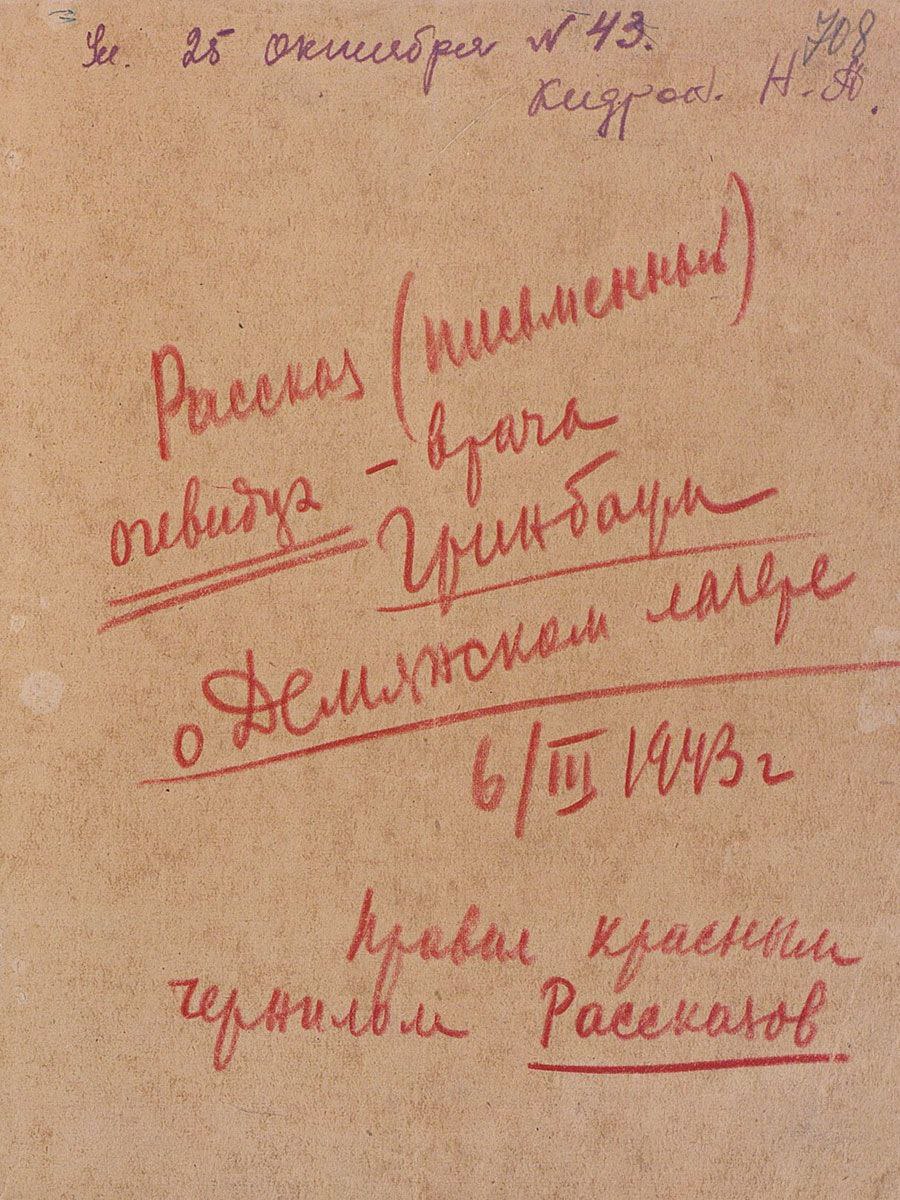 Ул. 25 октября № 43.
708
Кидров. Н.А.
Рассказ (письменный)
очевидца – врача
Гринбаум
о Демянском лагере
6/III 1943 г
Правал красным
чернилом Рассказов